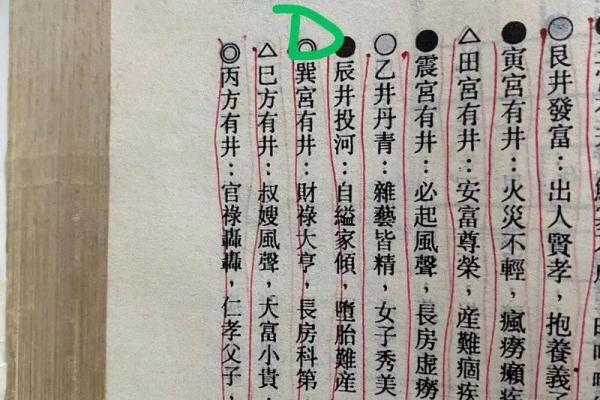 ◎艮井發富：出人賢孝，抱養義
●寅宮有井：火災不輕，瘋癆癲疾
△田宮有井：安富尊榮，産難痼疾
●震宮有井：必起風聲，長房虛癆
○乙井丹青：雜藝皆精，女子秀美
●辰井投河：自縊家傾，墮胎難産
◎巽宮有井：財祿大亨，長房科第
△巳方有井：叔嫂風聲，大富小貴，
◎丙方有井：官祿轟轟，仁孝父子，
D